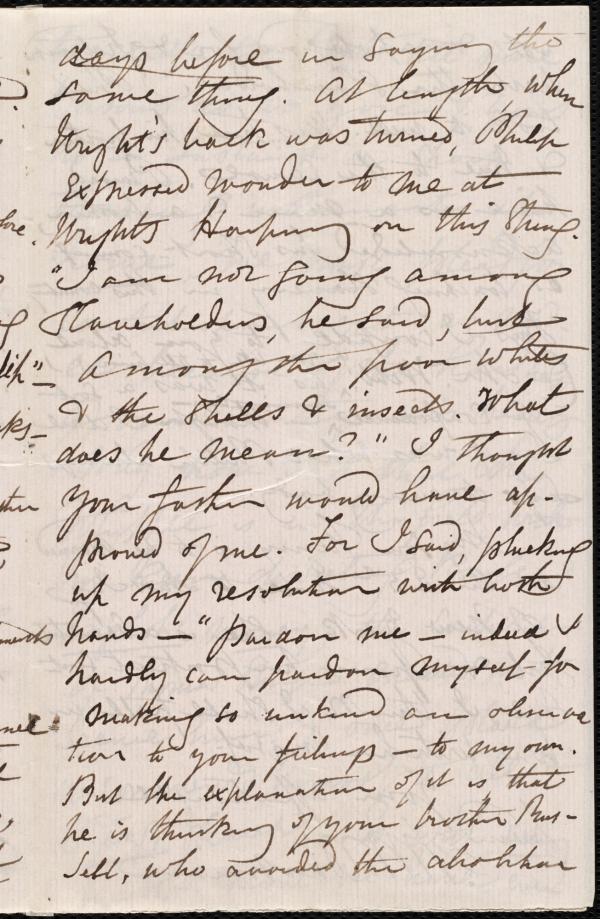 days before in saying the
same thing. At length, when
Wright's back was turned, Philip
expressed wonder to me at
Wright's Harping on this thing.
"I am not going among
Slaveholders, he said, but
amongst the poor whites
& the shells & insects. What
does he mean?" I thought
your father would have ap-
proved of me. For I said, plucking
up my resolution with both
hands — "Pardon me — indeed I
hardly can pardon myself for
making so unkind an observa
tion to your feelings — to my own.
But the explanation of it is that
he is thinking of your brother Rus-
sell, who avoided the abolition